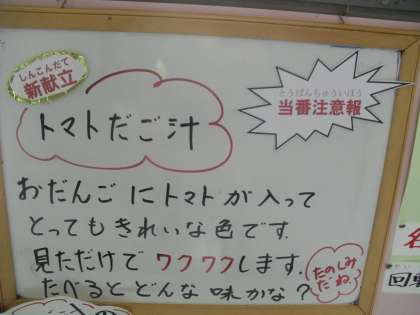 しんこんだて
新献立
とうばんちゅういほう
当番注意報
トマトだご汁
おだんごにトマトが入って
とってもきれいな色です.
見ただけでワクワクします.
たべるとどんな味かな?
たのしみ
だね.
回